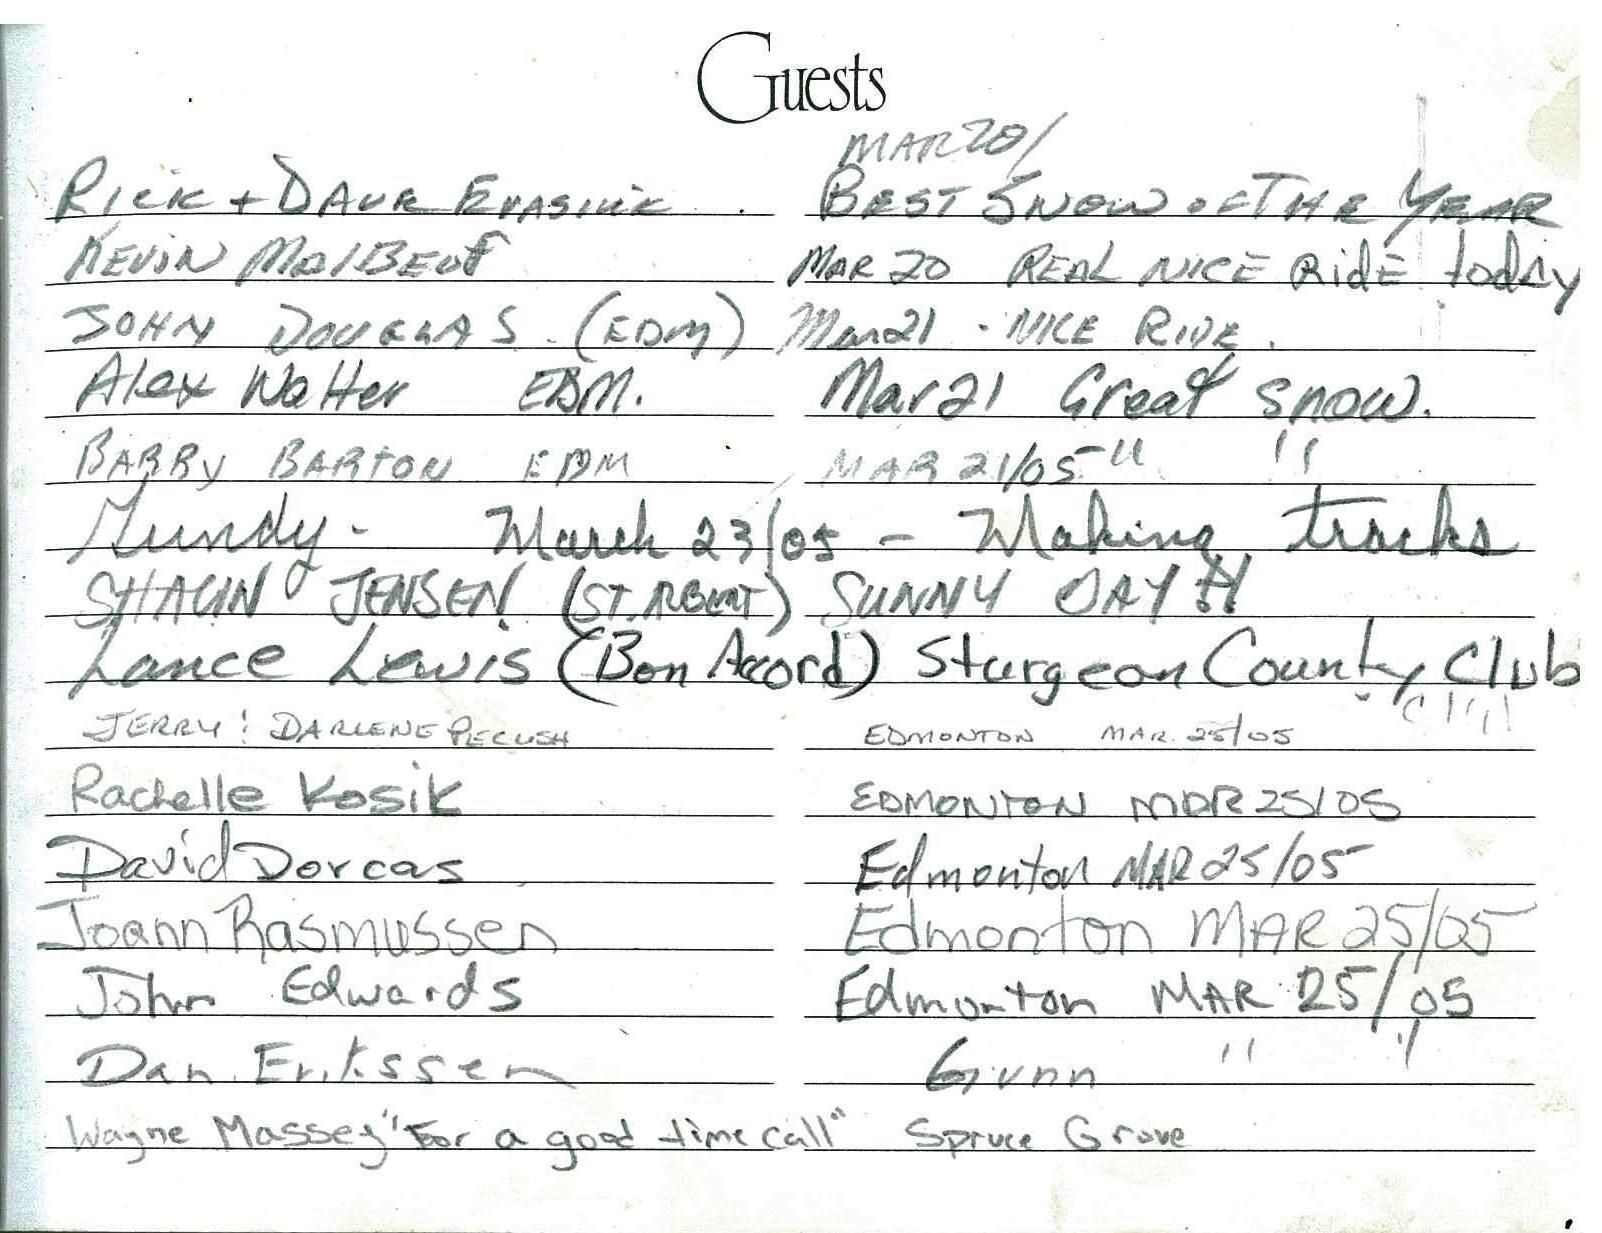 Guests
MAR 20/
RICK + DAVE ERASIUK BEST SNOW OF THE YEAR
KEVIN MalBEuf MAR 20 REAL NICE RIDE today
JOHN DOUGLAS (EDM) Mar 21 - NICE RIDE.
Alex Walter EDM. Mar 21 Great snow.
BARRY BARTON EDM MAR 21/05 " "
Mundy - March 23/05 - Making tracks
SHAUN JENSEN (ST. ALBERT) SUNNY DAY!!
Lance Lewis (Bon Accord) Sturgeon County Club
JERRY ! DARLENE PECUSH EDMONTON MAR. 25/05
Rachelle Kosik EDMONTON MAR 25/05
David Dorcas Edmonton MAR 25/05
Joann Rasmussen Edmonton MAR 25/05
John Edwards Edmonton MAR 25/05
Dan Erikssen Gunn " "
Wayne Massey "For a good time call" Spruce Grove